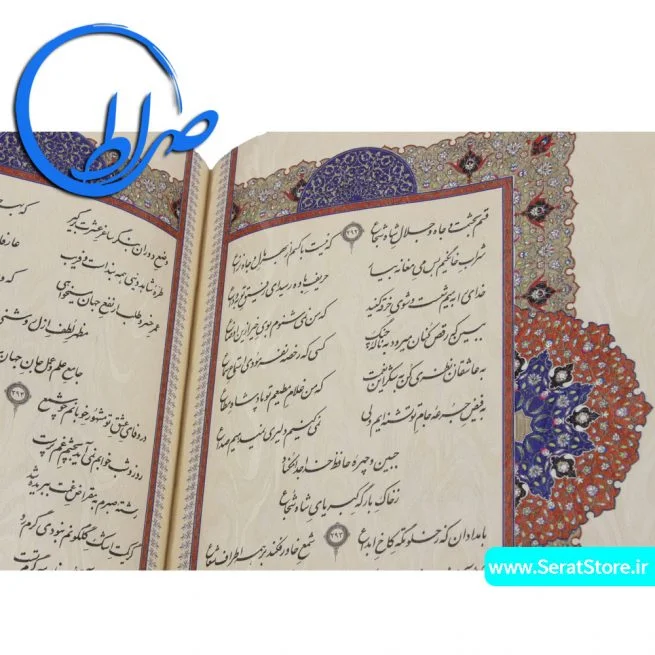 صراط
۲۹۲
قسم بحشمت و جاه و جلال شاه شجاع
که نیست با کسم از بهر مال و جاه نزاع
شراب خانگیم بس می مغانه بیار
حریف باده رسید ای رفیق توبه وداع
خدای را بمیم شست و شوی خرقه کنید
که من نمی شنوم بوی خیر ازین اوضاع
ببین که رقص کنان میرود بناله چنگ
کسی که رخصه نفرمودی استماع سماع
به عاشقان نظری کن بشکر این نعمت
که من غلام مطیعم تو پادشاه مطاع
به فیض جرعه جام تو تشنه ایم ولی
نمی کنیم دلیری نمی دهیم صداع
جبین و چهره حافظ خدا جدا مکناد
ز خاک بارگه کبریای شاه شجاع
۲۹۳
بامدادان که ز خلوتگه کاخ ابداع
شمع خاور فکند بر همه اطراف شعاع
وضع دوران بنگر ساغر عشرت برگیر
طره شاهد دنیی همه بندست و فریب
عمر خسرو طلب ار نفع جهان میخواهی
مظهر لطف ازل روشنی
جامع علم و عمل جان جهان
۲۹۴
در وفای عشق تو مشهور خوبانم چو شمع
روز و شب خوابم نمی آید بچشم غم پرست
رشته صبرم بمقراض غمت ببریده شد
گر کمیت اشک گلگونم نبودی گرم رو
www.SeratStore.ir